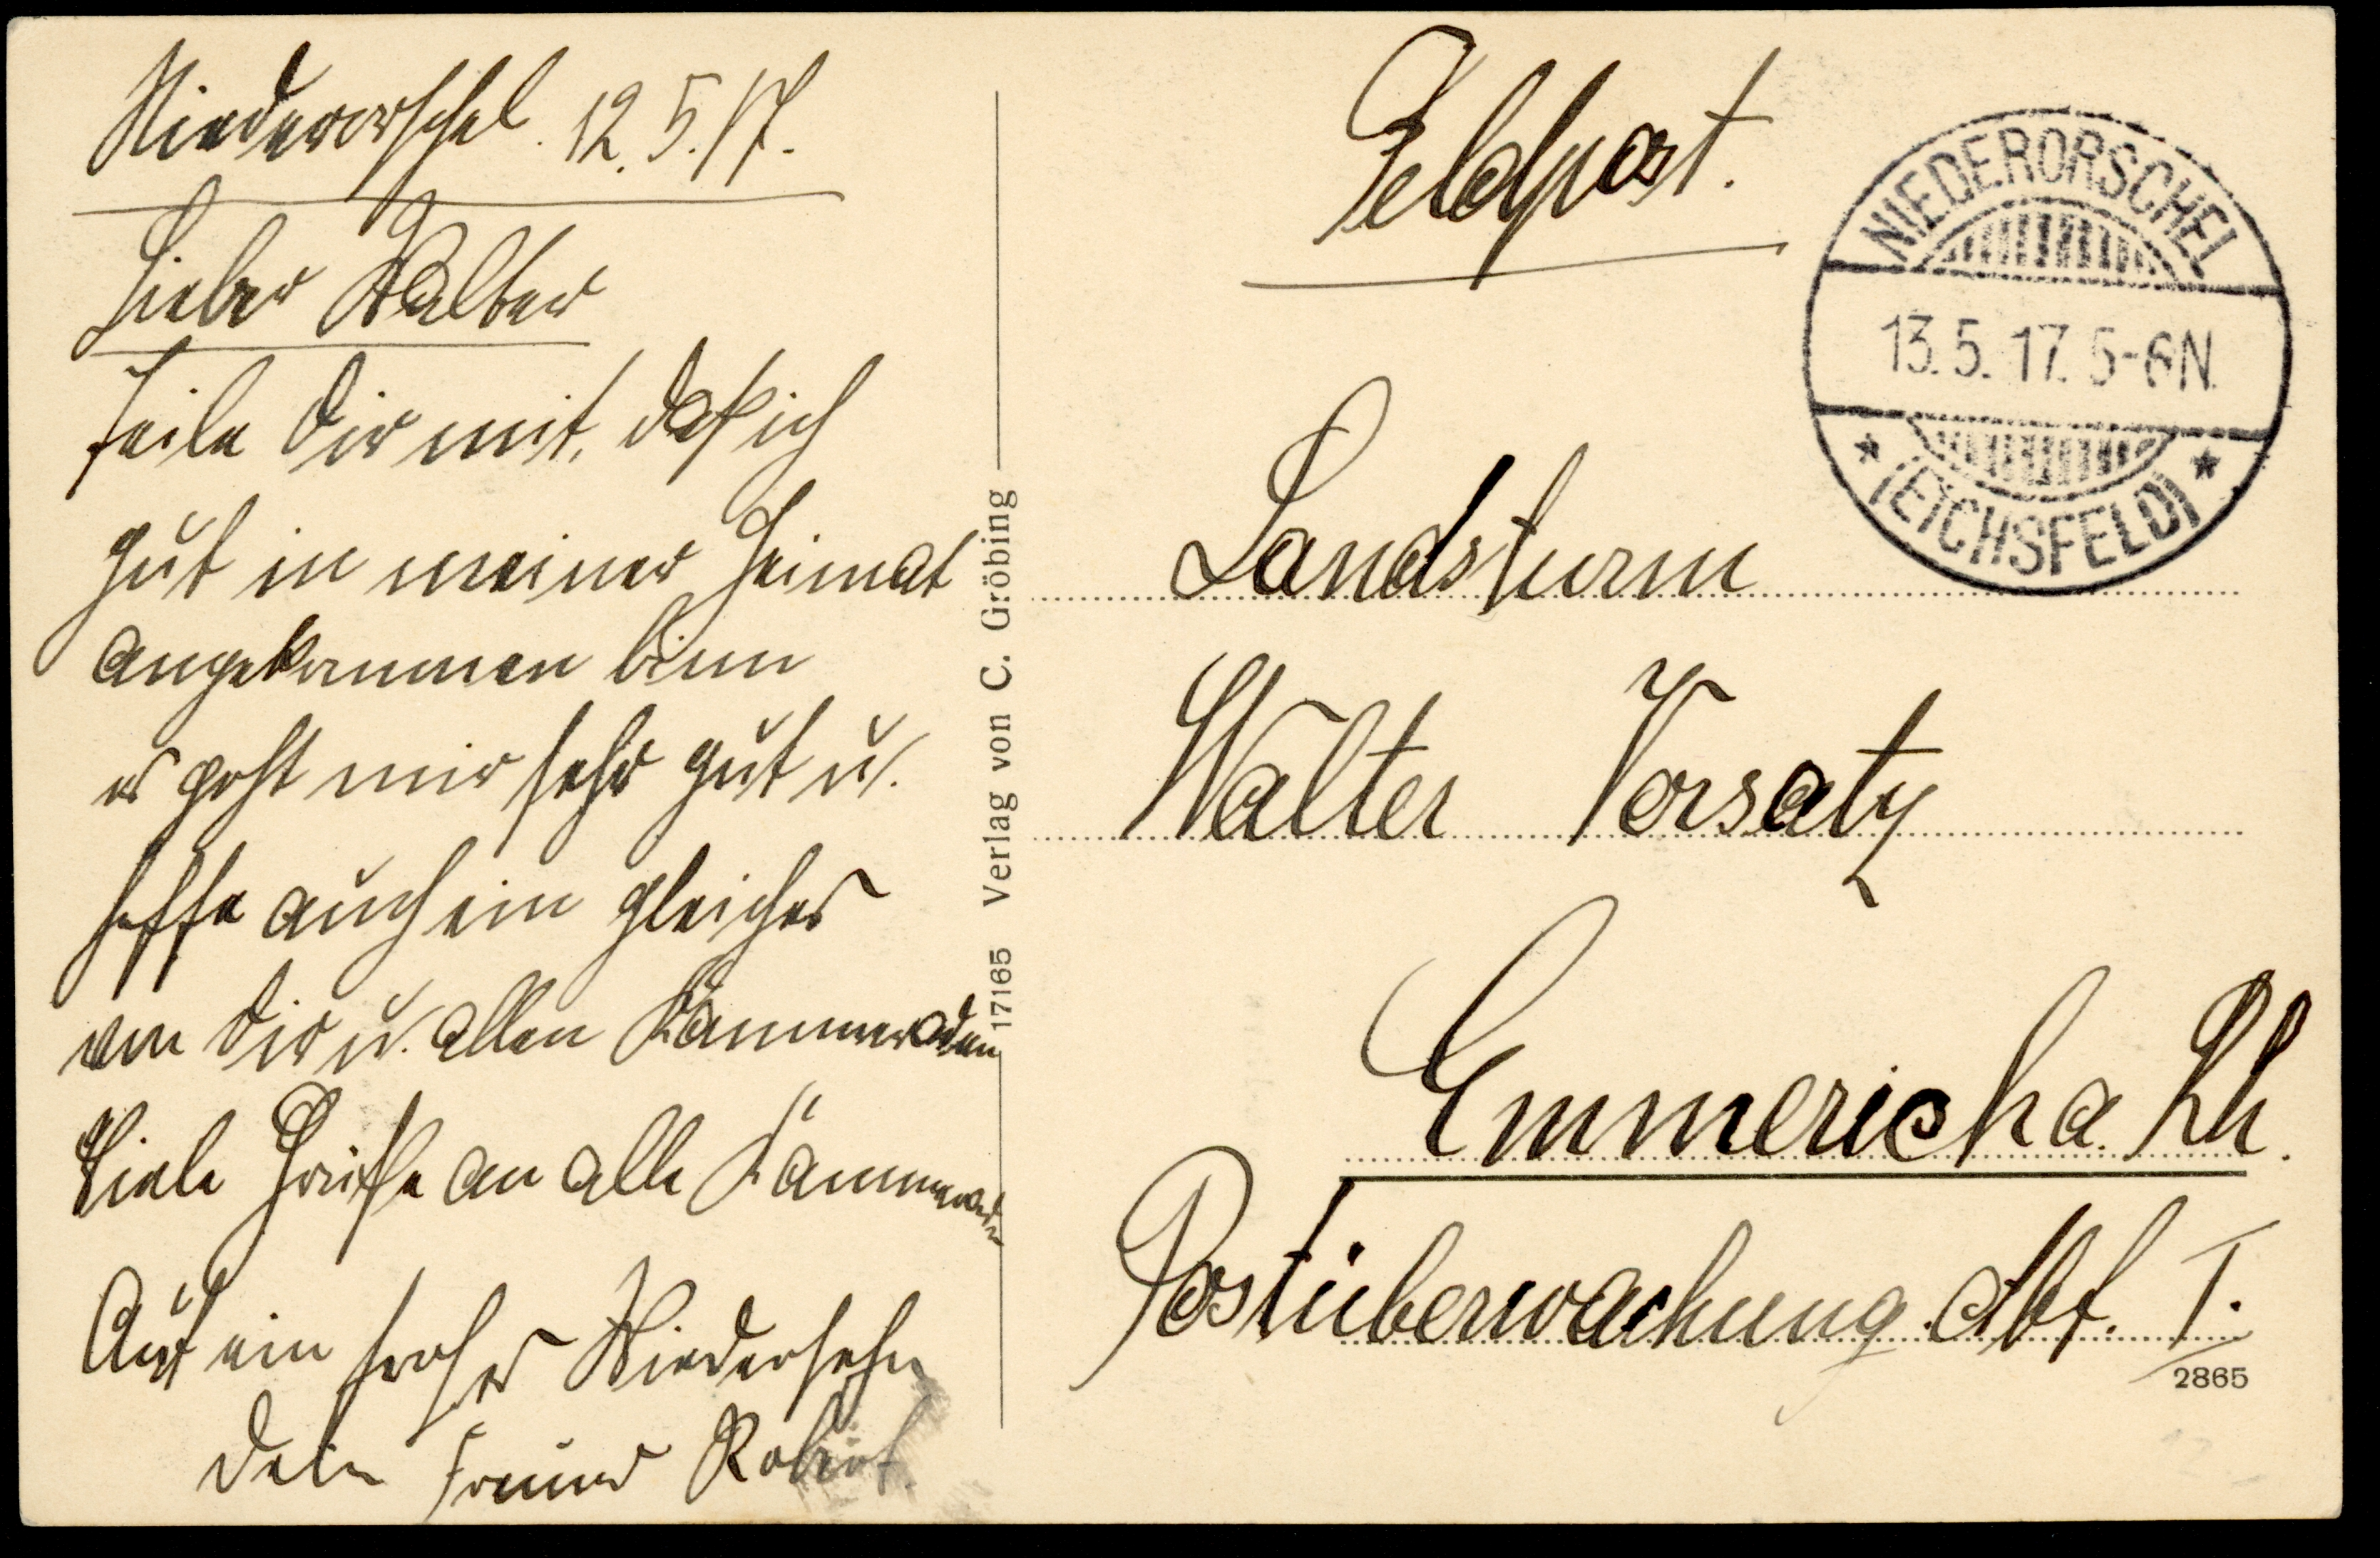 Niederorschel. 12.5.17.
Lieber Walter
Teile Dir mit, daß ich
gut in meiner Heimat
angekommen binn
es geht mir sehr gut u.
hoffe auch ein gleiches
von Dir u. allen Kammeraden
Viele Grüße an alle Kammeraden
Auf ein frohes Wiedersehn
Dein Freund Robert.
17165 Verlag von C. Gröbing
Feldpost.
NIEDERORSCHEL
13.5.17. 5-6N.
* (EICHSFELD) *
Landsturm
Walter Vorsatz
Emmerich a. Rh.
Postüberwachung. Abt. I.
2865